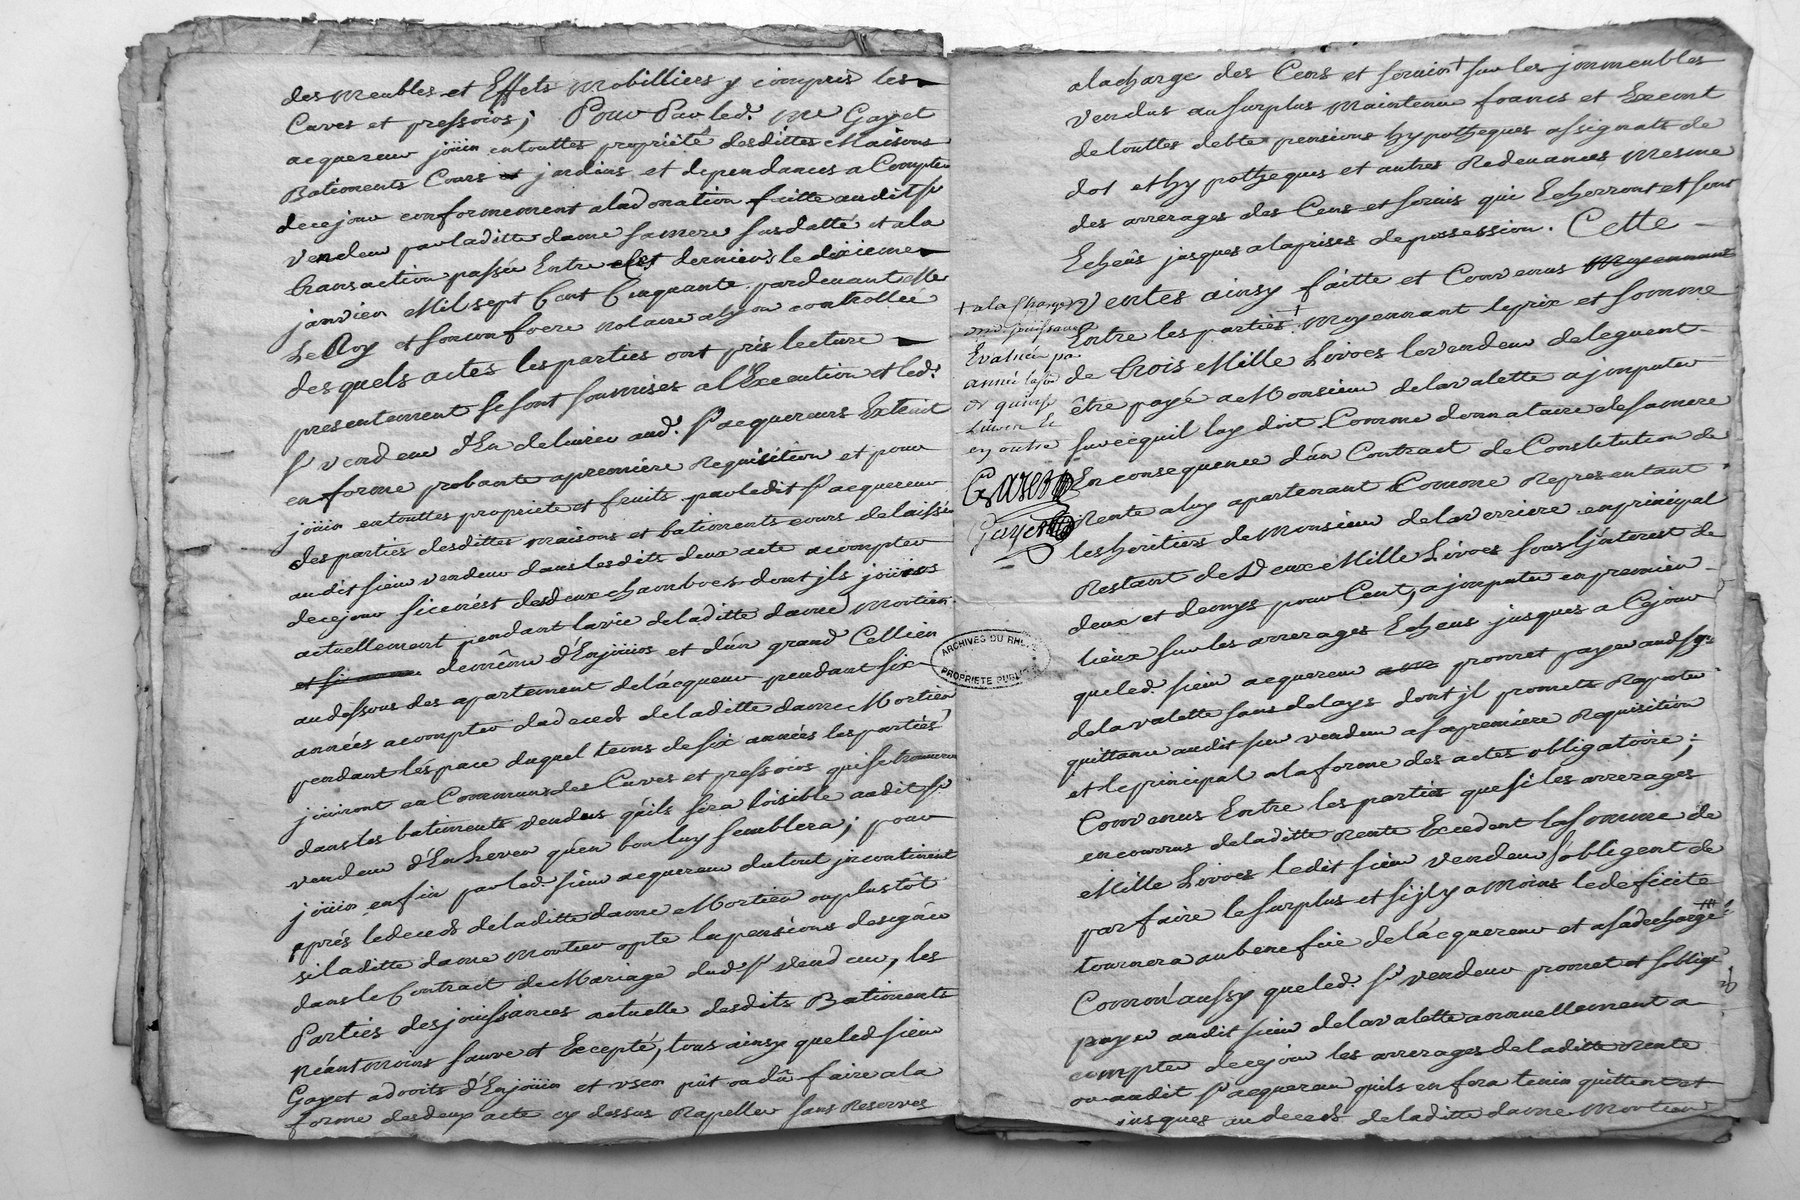 des meubles et Effets mobilliers y compris les
Caves et pressoirs; Pour Par led. me Gayet
acquereur joüir entouttes propriété desdittes Maisons
Batiments Cours et jardins et dependances a Compter
decejour conformement aladonation faitte audit sr
vendeur parladitte dame samere susdatté et ala
transaction passée Entre ces derniers le dixieme
janvier Mil sept Cent Cinquante pardevant Me
LeRoy et sonconfrere notaire alyon controllée
desquels actes lesparties ont pris lecture
presentement sesont soumises a l'Execution et led.
sr vendeur d'En delivrer aud. sr acquereurs Extrait
enforme probante apremiére Requisition et pour
joüir entouttes propriete et fruits parledit sr acquereur
des parties desdittes maisons et batiments cours delaissée
audit sieur vendeur dans lesdits deux acte acompter
decejour sicenést desdeux chambres dont jls joüiss
actuellement pendant lavie deladitte dame Mortier
demême d'Enjoüir et d'un grand Cellier
audessous des apartement delácquereur pendant six
années acompter dudeceds deladitte dame Mortier
pendant léspace duquel tems desix années lesparties
joüiront en Commun des Caves et pressoirs quise trouveront
dans les batiments vendus qu'ils sera loisible audit sr
vendeur d'Enlever quén bon luy semblera; pour
joüir enfin par led. sieur acquereur dutout jncontinent
aprés ledeceds deladitte dame Mortier ouplustôt
siladitte dame mortier opte la pensions designée
dans le Contract de Mariage dud. sr vendeur, les
Parties desjouissances actuelle desdits Batiments
Néantmoins sauve et Excepté, tous ainsy queled sieur
Gayet adroits d'Enjoüir et user püt oudû faire ala
forme desdeux acte cy dessus Rapeller sans Reserves
alacharge des Cens et servis sur les jmmeubles
vendus au surplus maintenu francs et Exempt
detouttes debte pensions hypotheques assignats de
dot et hypotheques et autres Redevances mesme
des arrerages des Cens et servis qui Echerront et sont
Echeûs jusques alaprises depossession. Cette
ventes ainsy faitte et Convenus moyennant
Entre les parties + moyennant leprix et somme
de trois Mille Livres levendeur deleguent
être payé a Monsieur delavalette ajmputer
surcequil luy doit Comme donnataire desamere
En consequence dún Contract de Constitution de
Rente aluy apartenant Comme Representant
lesheritiers de Monsieur delaverriere enprincipal
Restant de Deux Mille Livres sous l'jnterest de
deux et demys pour Cent, ajmputer enpremier
lieux sur les arrerages Echeus jusques a Cejour
queled. sieur acquereur promet payer aud sr
delavalette sans delays dont jl promets Raporter
quittance audit sieur vendeur asapremiére Requisition
et leprincipal alaforme des actes obligatoire;
Convenus Entre les parties quesi les arrerages
encourrus deladitte Rente Excedent lasomme de
Mille Livres ledit sieur vendeur s'obligent de
parfaire le surplus et sijly a moins ledeficite
tournera aubenefice delácquereur et asadecharge
Comm'aussy queled. sr vendeur promet et soblige
payer audit sieur delavalette annuellement a
compter decejour les arrerages deladitte Rente
ou audit sr acquereur quils enfera tenir quittent et
jusques audeceds deladitte dame Mortier
+ ala charge
jouissance
Evaluée par
année
de quinse
Livres le
en outre
Gayet
ARCHIVES DU RHÔNE
PROPRIETE PUBLIQUE